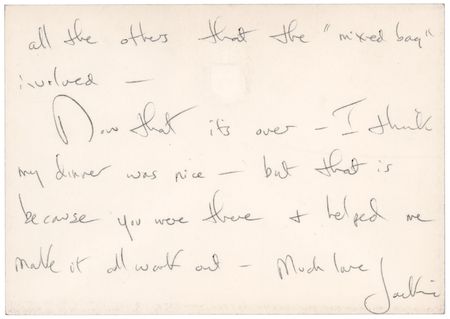 all the others that the "mixed bag"
involved —
Now that it's over — I think
my dinner was nice — but that is
because you were there + helped me
make it all work out — Much love
Jackie